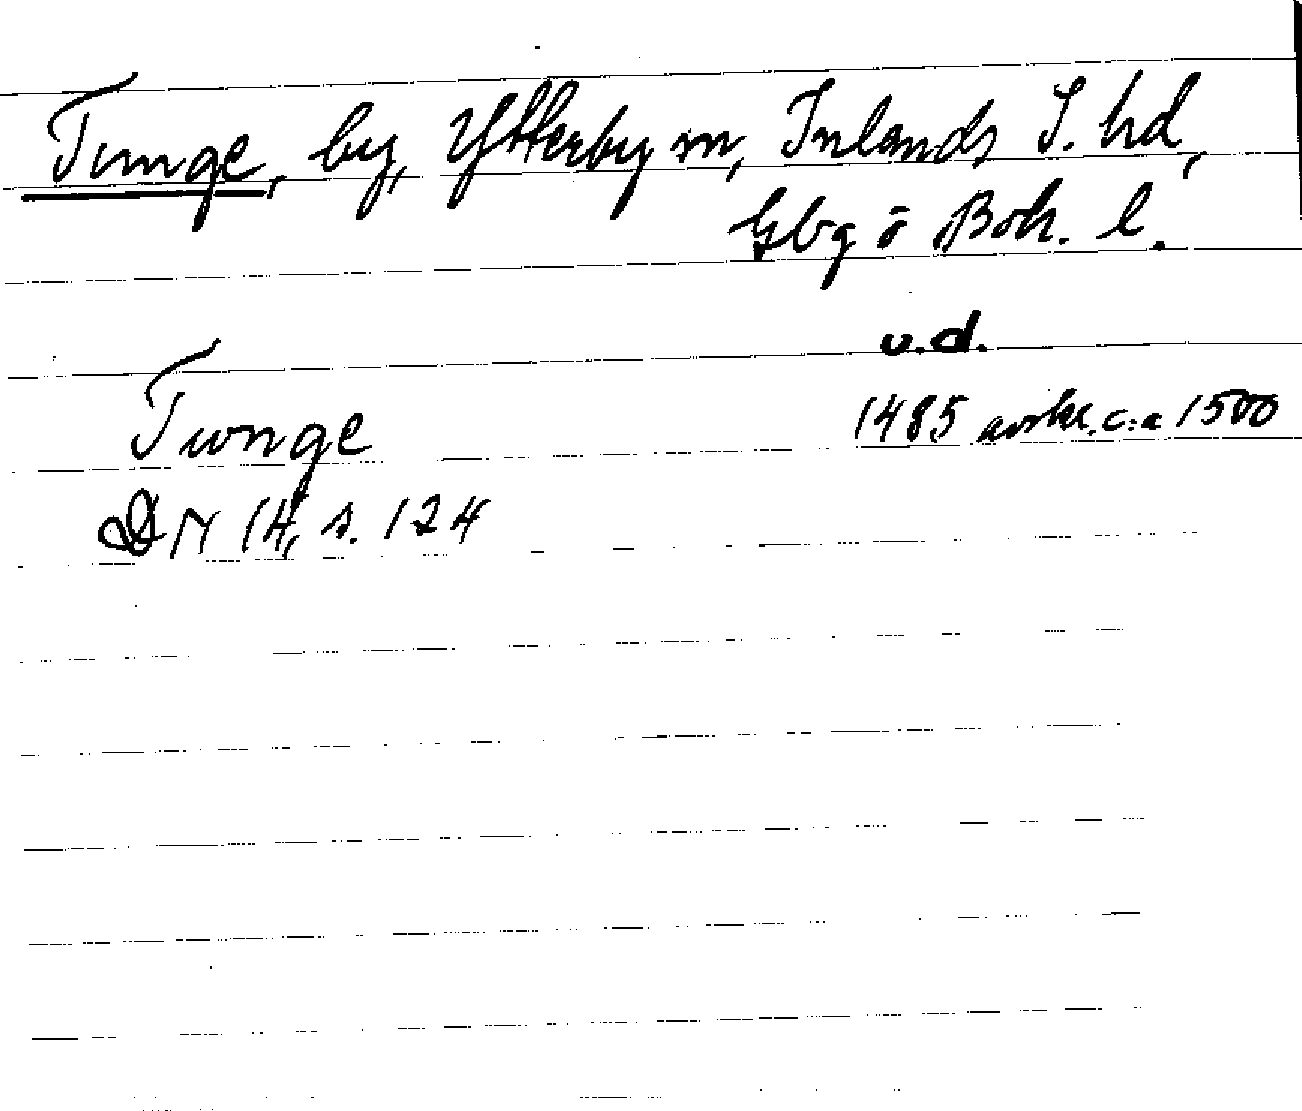 Tunge, by, Ytterby sn, Inlands S. hd,
Gbg o Boh. l.
u.d.
Twnge 1485 avskr. c:a 1500
DN 14, s. 124